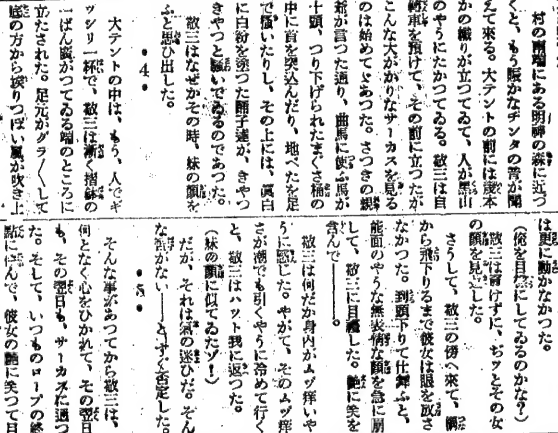 村の南端にある明神の森に近づ
くと、もう賑かなヂンタの響が聞
えて來る。大テントの前には幾本
かの幟りが立つてゐて、人が黑山
のやうにたかつてゐる。敬三は自
轉車を預けて、その前に立つたが
こんな大がかりなサーカスを見る
のは始めてゞあつた。さつきの親
爺が言つた通り、曲馬に使ふ馬が
十頭、つり下げられたまぐさ桶の
中に首を突込んだり、地べたを足
で掻いたりし、その上には、眞白
に白粉を塗つた踊子達が、きやつ
きやつと騷いでゐるのであつた。
敬三はなぜかその時、妹の顏を
ふと思ひ出した。
・4・
大テントの中は、もう、人でギ
ッシリ一杯で、敬三は漸く招鉢の
一ばん廣がつてゐる端のところに
立たされた。足元がグラ／＼して
底の方から埃りつぽい風が吹き上
は更に動かなかつた。
（俺を目標にしてゐるのかな？）
敬三は負けずに、ぢッとその女
の顏を見返した。
さうして、敬三の傍へ來て、
から飛下りるまで彼女は眼を放さ
なかつた。到頭下りて仕舞ふと、
能面のやうな無表情な顏を急に崩
して、敬三に目禮した。艶に笑を
含んで――。
敬三は何だか身内がムヅ痒いや
うに感じた。やがて、そのムヅ痒
さが潮でも引くやうに冷めて行く
と、敬三はハット我に返つた。
（妹の顏に似てゐたゾ！）
だが、それは氣の迷ひだ。そん
な筈がない――とすぐ否定した。
・5・
そんな事があつてから敬三は、
何となく心をひかれて、その翌日
も、その翌日も、サーカスに通つ
た。そして、いつものロープの終
點に佇んで、彼女の艶に笑つて目